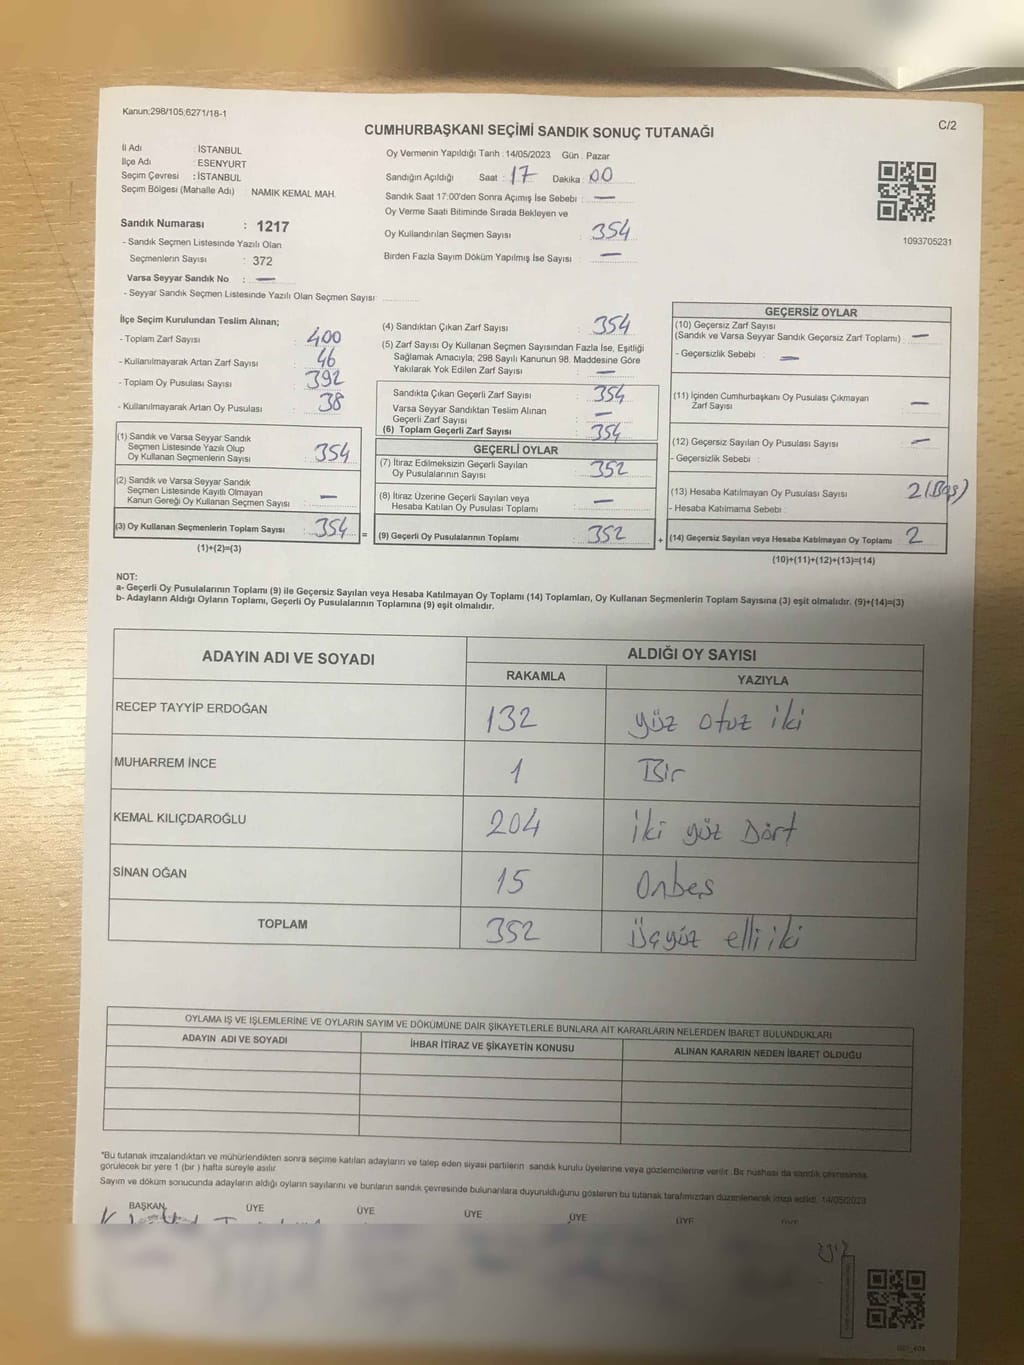 Kanun:298/105;6271/18-1
C/2
CUMHURBAŞKANI SEÇİMİ SANDIK SONUÇ TUTANAĞI
İl Adı : İSTANBUL
İlçe Adı : ESENYURT
Seçim Çevresi : İSTANBUL
Seçim Bölgesi (Mahalle Adı) : NAMIK KEMAL MAH.
Sandık Numarası : 1217
- Sandık Seçmen Listesinde Yazılı Olan
Seçmenlerin Sayısı : 372
Varsa Seyyar Sandık No : —
- Seyyar Sandık Seçmen Listesinde Yazılı Olan Seçmen Sayısı:
Oy Vermenin Yapıldığı Tarih : 14/05/2023 Gün : Pazar
Sandığın Açıldığı Saat : 17 Dakika : 00
Sandık Saat 17:00'den Sonra Açımış İse Sebebi : —
Oy Verme Saati Bitiminde Sırada Bekleyen ve
Oy Kullandırılan Seçmen Sayısı : 354
Birden Fazla Sayım Döküm Yapılmış İse Sayısı : —
1093705231
İlçe Seçim Kurulundan Teslim Alınan;
- Toplam Zarf Sayısı : 400
- Kullanılmayarak Artan Zarf Sayısı : 46
- Toplam Oy Pusulası Sayısı : 392
- Kullanılmayarak Artan Oy Pusulası : 38
(1) Sandık ve Varsa Seyyar Sandık
Seçmen Listesinde Yazılı Olup
Oy Kullanan Seçmenlerin Sayısı : 354
(2) Sandık ve Varsa Seyyar Sandık
Seçmen Listesinde Kayıtlı Olmayan
Kanun Gereği Oy Kullanan Seçmen Sayısı : —
(3) Oy Kullanan Seçmenlerin Toplam Sayısı : 354 =
(1)+(2)=(3)
(4) Sandıktan Çıkan Zarf Sayısı : 354
(5) Zarf Sayısı Oy Kullanan Seçmen Sayısından Fazla İse, Eşitliği
Sağlamak Amacıyla; 298 Sayılı Kanunun 98. Maddesine Göre
Yakılarak Yok Edilen Zarf Sayısı : —
Sandıkta Çıkan Geçerli Zarf Sayısı : 354
Varsa Seyyar Sandıktan Teslim Alınan
Geçerli Zarf Sayısı : —
(6) Toplam Geçerli Zarf Sayısı : 354
GEÇERLİ OYLAR
(7) İtiraz Edilmeksizin Geçerli Sayılan
Oy Pusulalarının Sayısı : 352
(8) İtiraz Üzerine Geçerli Sayılan veya
Hesaba Katılan Oy Pusulası Toplamı : —
(9) Geçerli Oy Pusulalarının Toplamı : 352 +
GEÇERSİZ OYLAR
(10) Geçersiz Zarf Sayısı
(Sandık ve Varsa Seyyar Sandık Geçersiz Zarf Toplamı) : —
- Geçersizlik Sebebi : —
(11) İçinden Cumhurbaşkanı Oy Pusulası Çıkmayan
Zarf Sayısı : —
(12) Geçersiz Sayılan Oy Pusulası Sayısı : —
- Geçersizlik Sebebi :
(13) Hesaba Katılmayan Oy Pusulası Sayısı : 2 (Boş)
- Hesaba Katılmama Sebebi :
(14) Geçersiz Sayılan veya Hesaba Katılmayan Oy Toplamı : 2
(10)+(11)+(12)+(13)=(14)
NOT:
a- Geçerli Oy Pusulalarının Toplamı (9) ile Geçersiz Sayılan veya Hesaba Katılmayan Oy Toplamı (14) Toplamları, Oy Kullanan Seçmenlerin Toplam Sayısına (3) eşit olmalıdır. (9)+(14)=(3)
b- Adayların Aldığı Oyların Toplamı, Geçerli Oy Pusulalarının Toplamına (9) eşit olmalıdır.
ADAYIN ADI VE SOYADI ALDIĞI OY SAYISI
RAKAMLA YAZIYLA
RECEP TAYYİP ERDOĞAN 132 yüz otuz iki
MUHARREM İNCE 1 Bir
KEMAL KILIÇDAROĞLU 204 iki yüz Dört
SİNAN OĞAN 15 Onbeş
TOPLAM 352 Üçyüz elli iki
OYLAMA İŞ VE İŞLEMLERİNE VE OYLARIN SAYIM VE DÖKÜMÜNE DAİR ŞİKAYETLERLE BUNLARA AİT KARARLARIN NELERDEN İBARET BULUNDUKLARI
ADAYIN ADI VE SOYADI İHBAR İTİRAZ VE ŞİKAYETİN KONUSU ALINAN KARARIN NEDEN İBARET OLDUĞU
*Bu tutanak imzalandıktan ve mühürlendikten sonra seçime katılan adayların ve talep eden siyasi partilerin sandık kurulu üyelerine veya gözlemcilerine verilir. Bir nüshası da sandık çevresinde
görülecek bir yere 1 (bir ) hafta süreyle asılır.
Sayım ve döküm sonucunda adayların aldığı oyların sayılarını ve bunların sandık çevresinde bulunanlara duyurulduğunu gösteren bu tutanak tarafımızdan düzenlenerek imza edildi. 14/05/2023
BAŞKAN ÜYE ÜYE ÜYE ÜYE ÜYE ÜYE